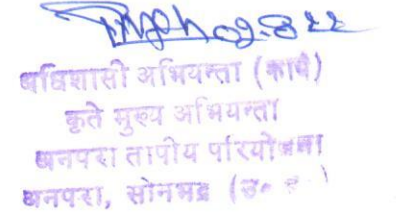 02.8.22
अधिशासी अभियन्ता (कार्य)
कृते मुख्य अभियन्ता
अनपरा तापीय परियोजना
अनपरा, सोनभद्र (उ०